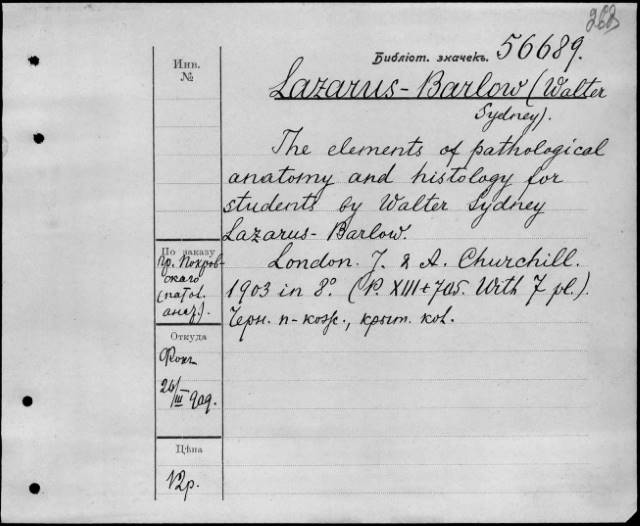 268
Библіот. значекъ. 56689.
Инв.
№
Lazarus-Barlow (Walter
Sydney).
The elements of pathological
anatomy and histology for
students by Walter Sydney
Lazarus-Barlow.
London. J. & A. Churchill.
1903 in 8°. (P. XIII+705. With 7 pl.).
Черн. п-кож., крыт. кол.
По заказу
пр. Покров-
скаго
(патол.
анат.).
Откуда
26/III 909.
Цѣна
12р.